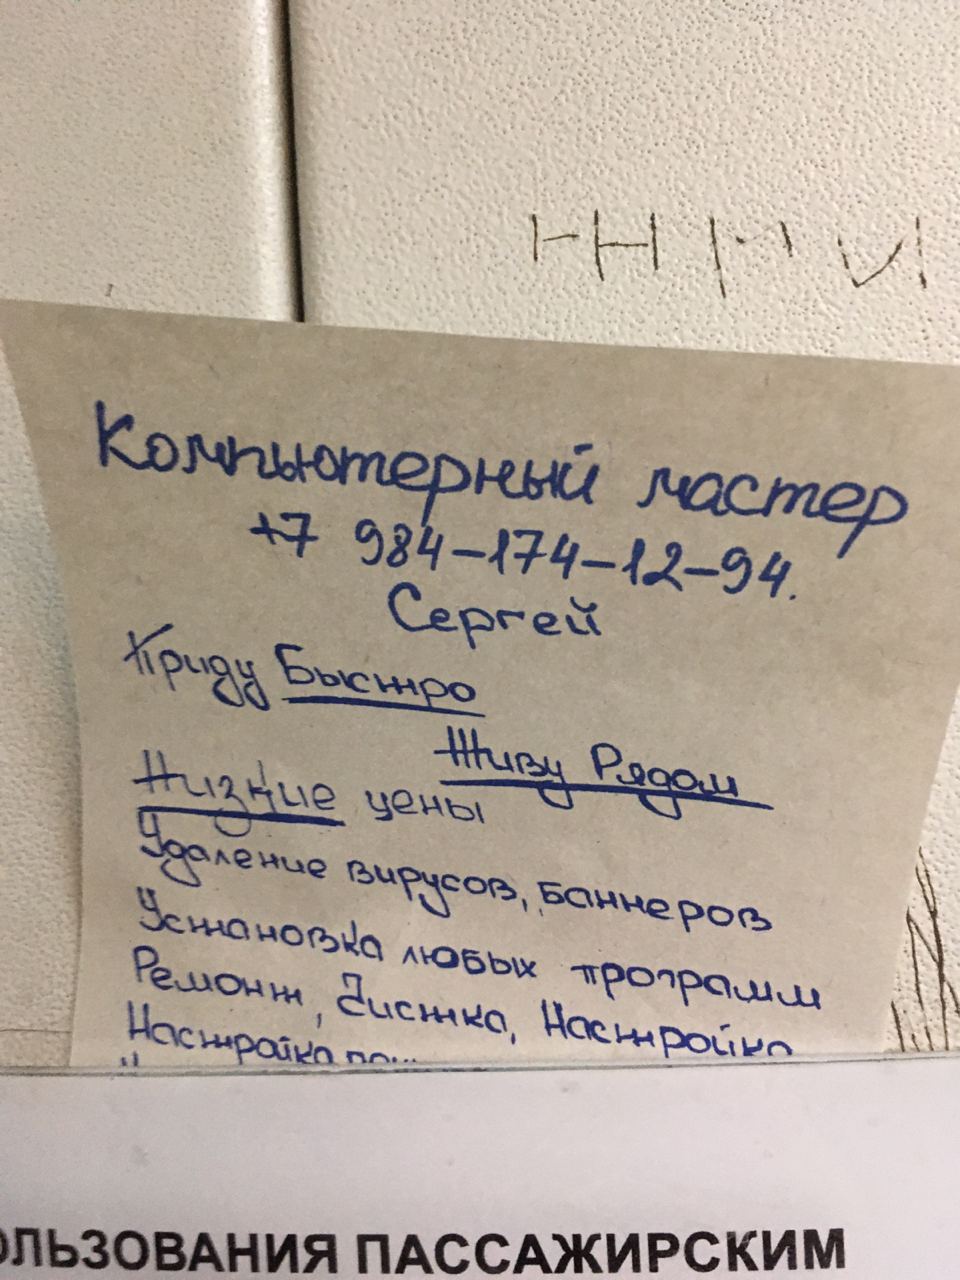 Компьютерный мастер
+7 984-174-12-94.
Сергей
Приду Быстро
Живу Рядом
Низкие цены
Удаление вирусов, баннеров
Установка любых программ
Ремонт, Чистка, Настройка
Настройка
ОЛЬЗОВАНИЯ ПАССАЖИРСКИМ